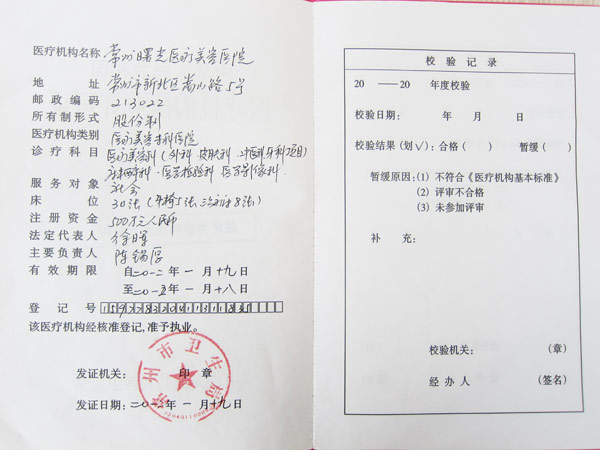 医疗机构名称 常州曙光医疗美容医院
地 址 常州市新北区嵩山路5号
邮政编码 213022
所有制形式 股份制
医疗机构类别 医疗美容专科医院
诊疗科目 医疗美容科(外科.皮肤科.中医科.牙科项目)
麻醉科.医学检验科.医学影像科.
服务对象 社会
床 位 30张(牙椅1张、 8张)
注册资金 500万元人民币
法定代表人 徐晖
主要负责人 陈锡厚
有效期限 自二〇一二年一月十九日
至二〇一五年一月十八日
登记号
该医疗机构经核准登记,准予执业。
常州市卫生局
发证机关: 印 章
发证日期:二〇一二年一月十九日
校验记录
20 ——20 年度校验
校验日期: 年 月 日
校验结果(划√):合格( ) 暂缓( )
暂缓原因:(1) 不符合《医疗机构基本标准》
(2) 评审不合格
(3) 未参加评审
补 充:
校验机关: (章)
经办人 (签名)